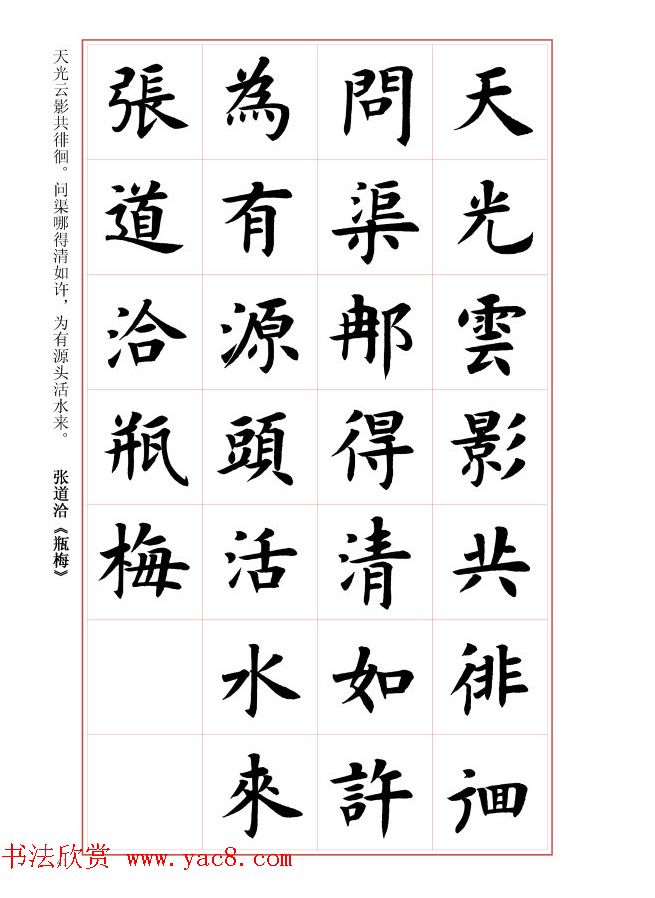 天光雲影共徘徊
問渠那得清如許
為有源頭活水來
張道洽瓶梅
天光云影共徘徊。问渠哪得清如许，为有源头活水来。 张道洽《瓶梅》
书法欣赏 www.yac8.com